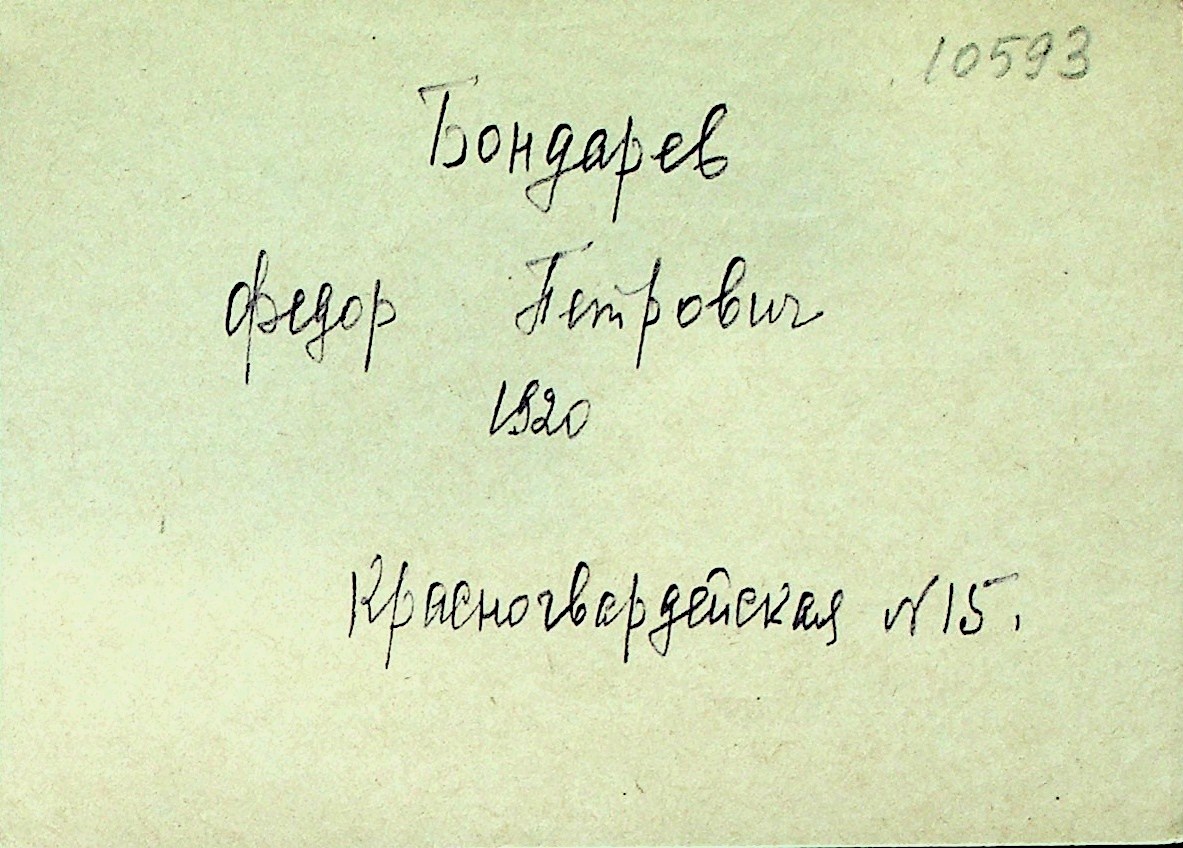 10593
Бондарев
Федор Петрович
1920
Красногвардейская N 15.